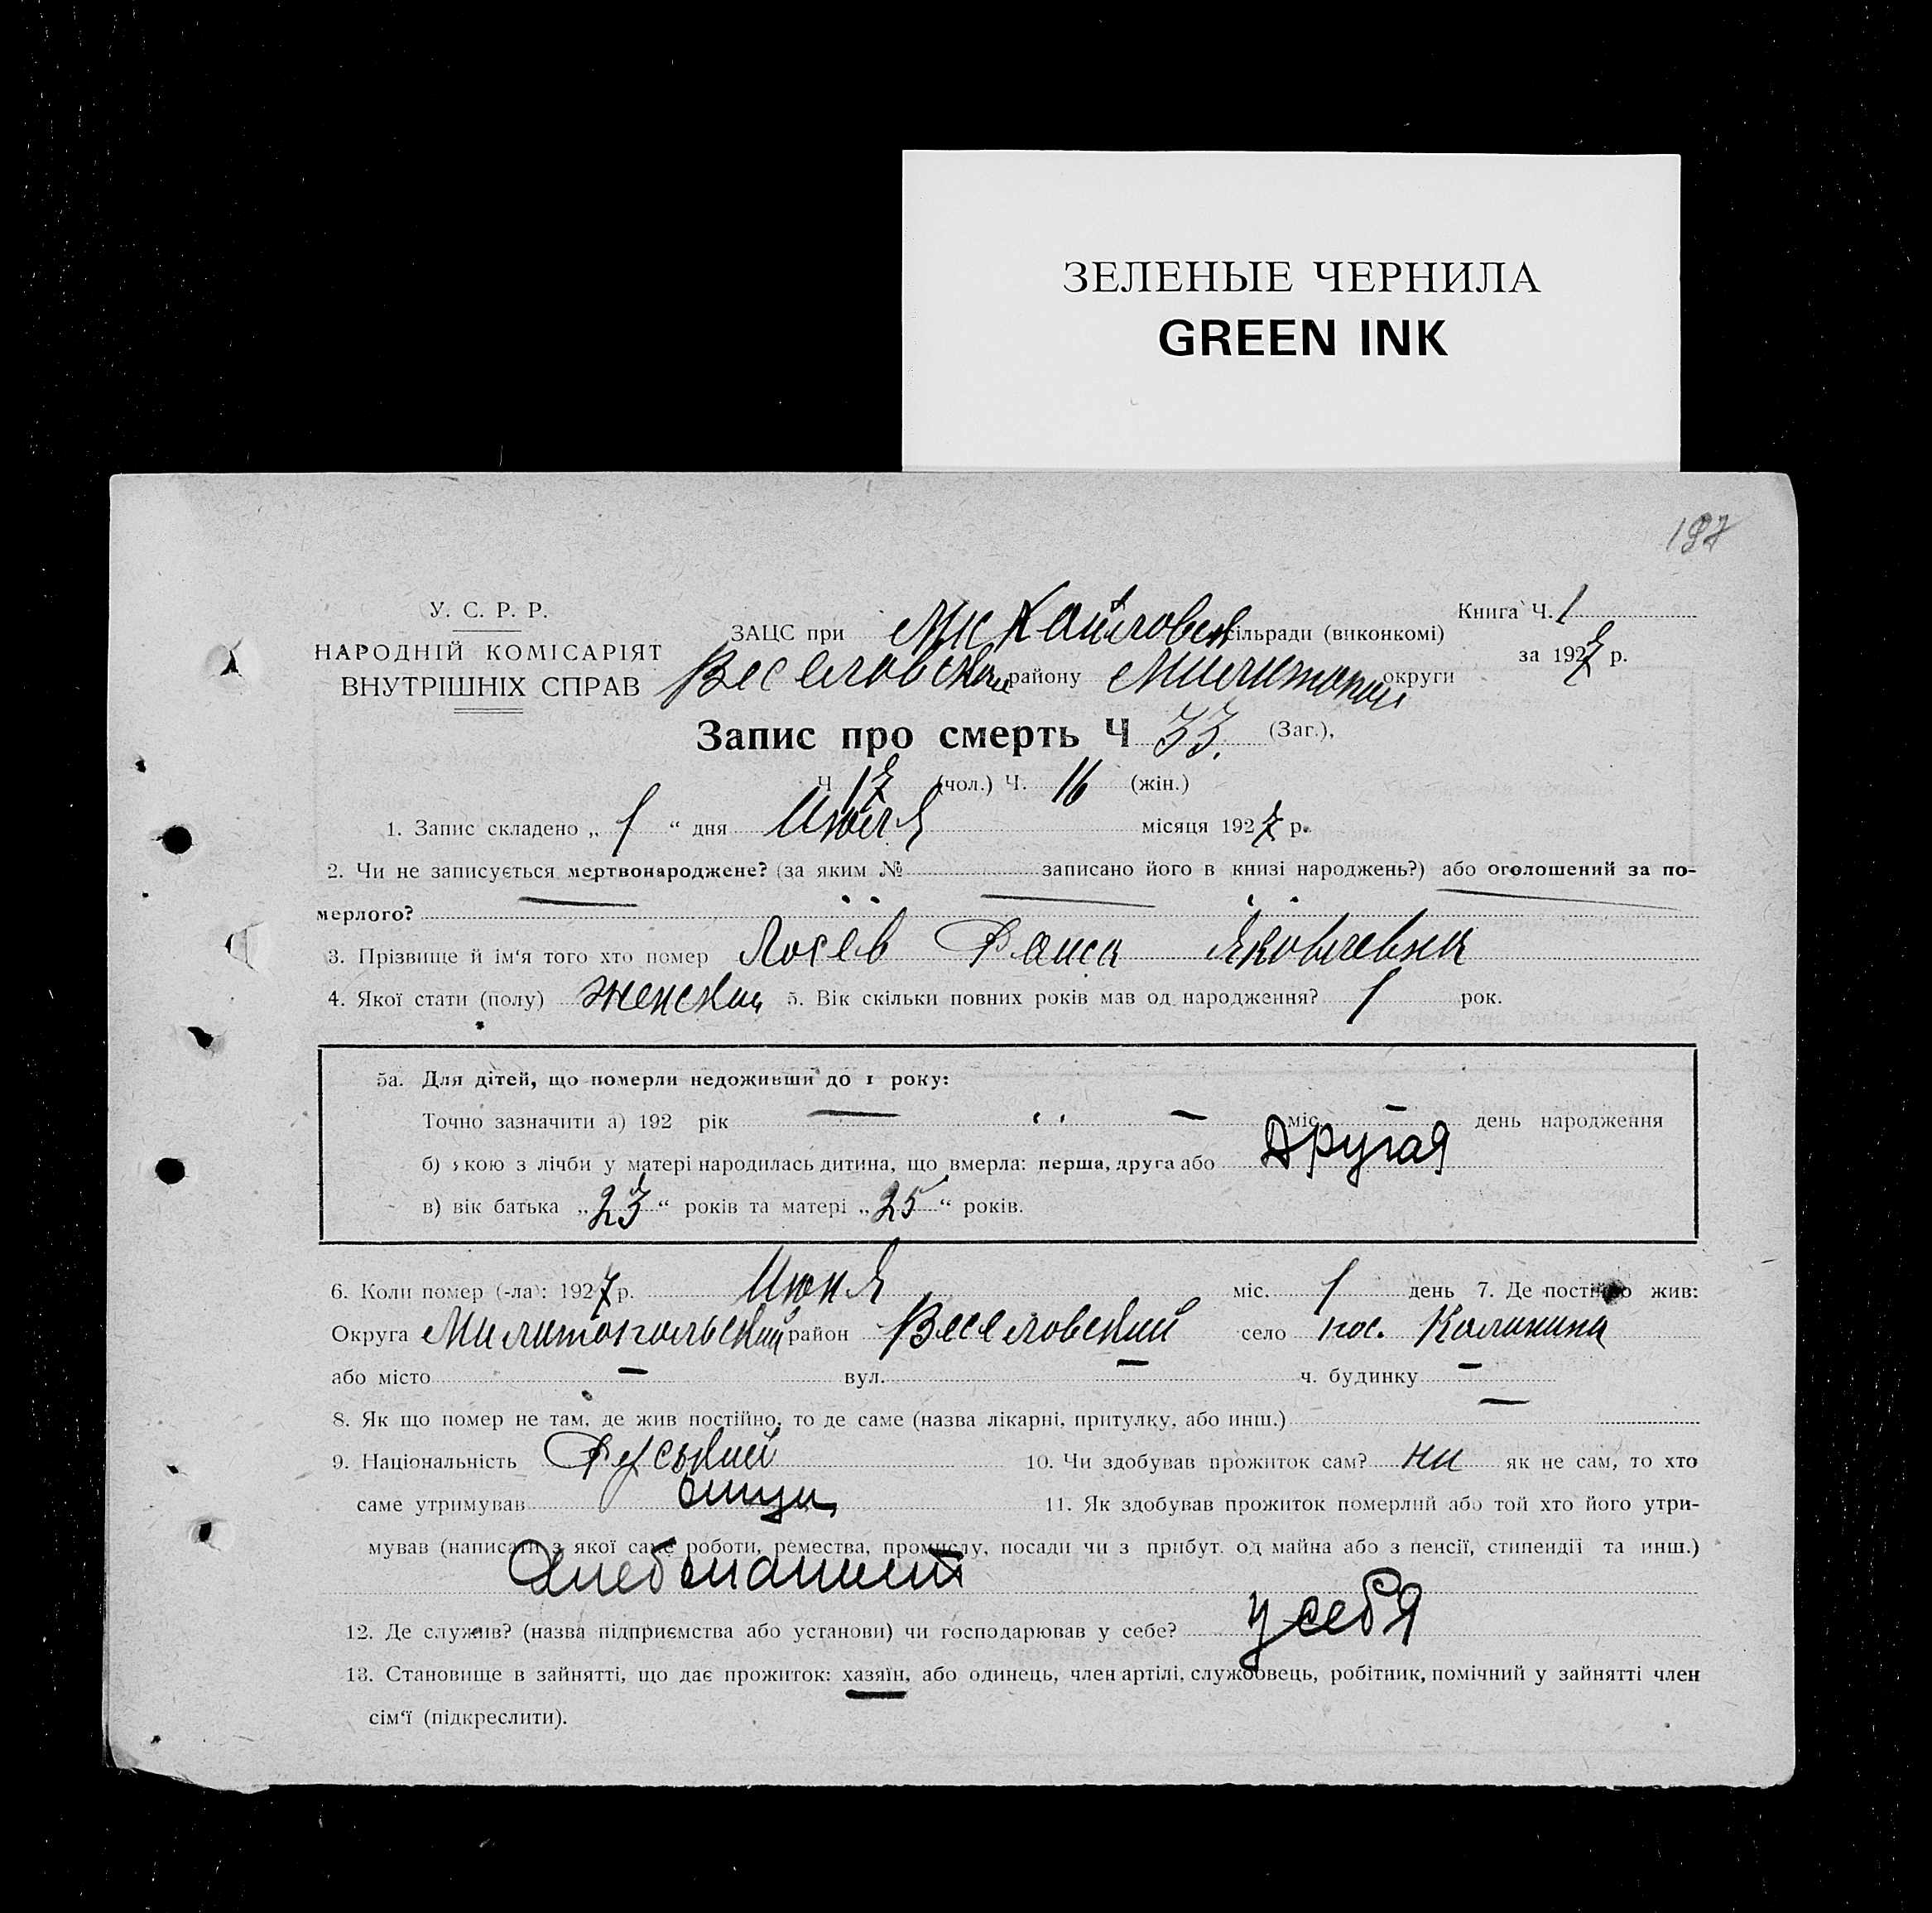 ЗЕЛЕНЫЕ ЧЕРНИЛА
GREEN INK
197
У. С. Р. Р.
НАРОДНІЙ КОМІСАРІЯТ
ВНУТРІШНІХ СПРАВ
Книга Ч. 1
за 1927 р.
ЗАЦС при Михайловск сільради (виконкомі)
Веселовском району Милитопол округи
Запис про смерть Ч 33. (Заг.),
Ч 17 (чол.) Ч. 16 (жін.)
1. Запис складено „ 1 “ дня Июля місяця 1927 р.
2. Чи не записується мертвонароджене? (за яким № — записано його в книзі народжень?) або оголошений за по-
мерлого?
3. Прізвище й ім‘я того хто помер Лосев Раиса Яковлевна
4. Якої стати (полу) женский 5. Вік скільки повних років мав од народження? 1 рок.
5а. Для дітей, що померли недоживши до 1 року:
Точно зазначити а) 192 рік — „ — міс. — день народження
б) якою з лічби у матері народилась дитина, що вмерла: перша, друга або Другая
в) вік батька „ 23 “ років та матері „ 25 “ років.
6. Коли помер (-ла): 1927 р. Июня міс. 1 день 7. Де постійно жив:
Округа Милитопольский район Веселовский село пос. Калинина
або місто — вул. — ч. будинку —
8. Як що помер не там, де жив постійно, то де саме (назва лікарні, притулку, або инш.) —
9. Національність Руський 10. Чи здобував прожиток сам? ни як не сам, то хто
саме утримував отец 11. Як здобував прожиток померлий або той хто його утри-
мував (написати з якої саме роботи, ремества, промислу, посади чи з прибут. од майна або з пенсії, стипендії та инш.)
Хлебопашест
12. Де служив? (назва підприємства або установи) чи господарював у себе? у себя
13. Становище в зайнятті, що дає прожиток: хазяїн, або одинець, член артілі, службовець, робітник, помічний у зайнятті член
сім‘ї (підкреслити).